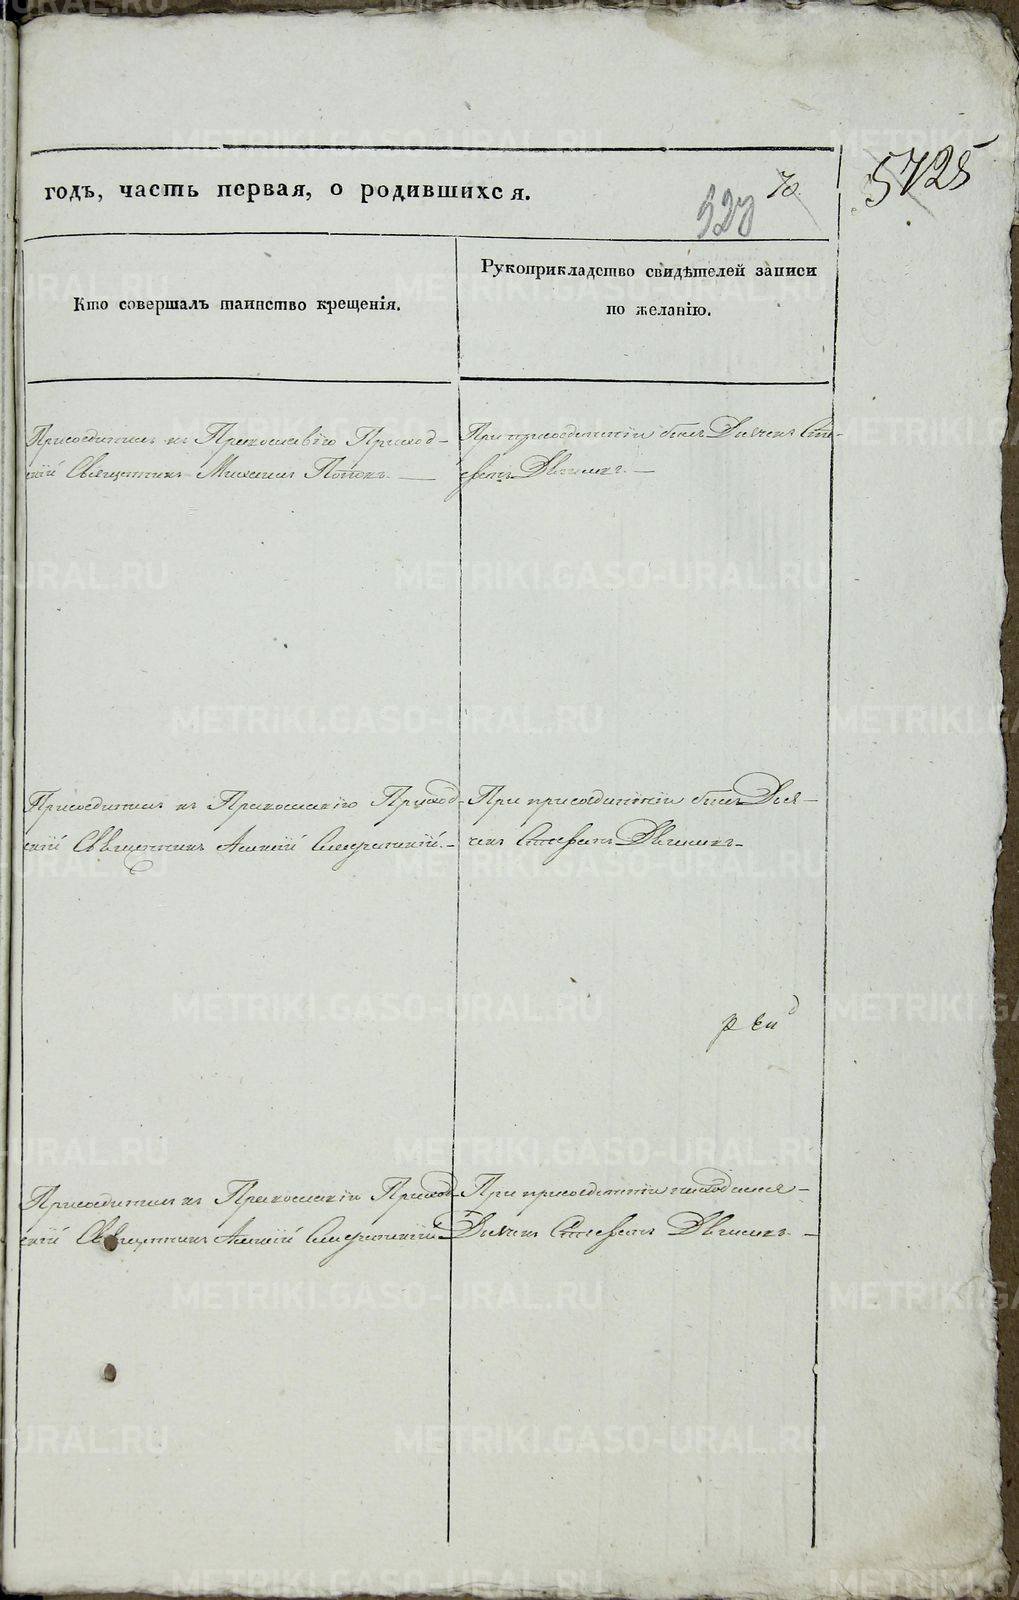 годъ, часть первая, о родившихся.
70
5725
Кто совершалъ таинство крещенія.
Рукоприкладство свидѣтелей записи
по желанію.
Присоединилъ къ Православію Приход-
скій Священникъ Михаилъ Поповъ. —
При присоединеніи былъ Дьячекъ Сте-
фанъ —
Присоединилъ къ Православію Приход-
скій Священникъ Алексій
При присоединеніи былъ Дья-
чекъ Стефанъ
Присоединилъ къ Православію Приход-
скій Священникъ Алексій
При присоединеніи находился
Дьячекъ Стефанъ
METRIKI.GASO-URAL.RU